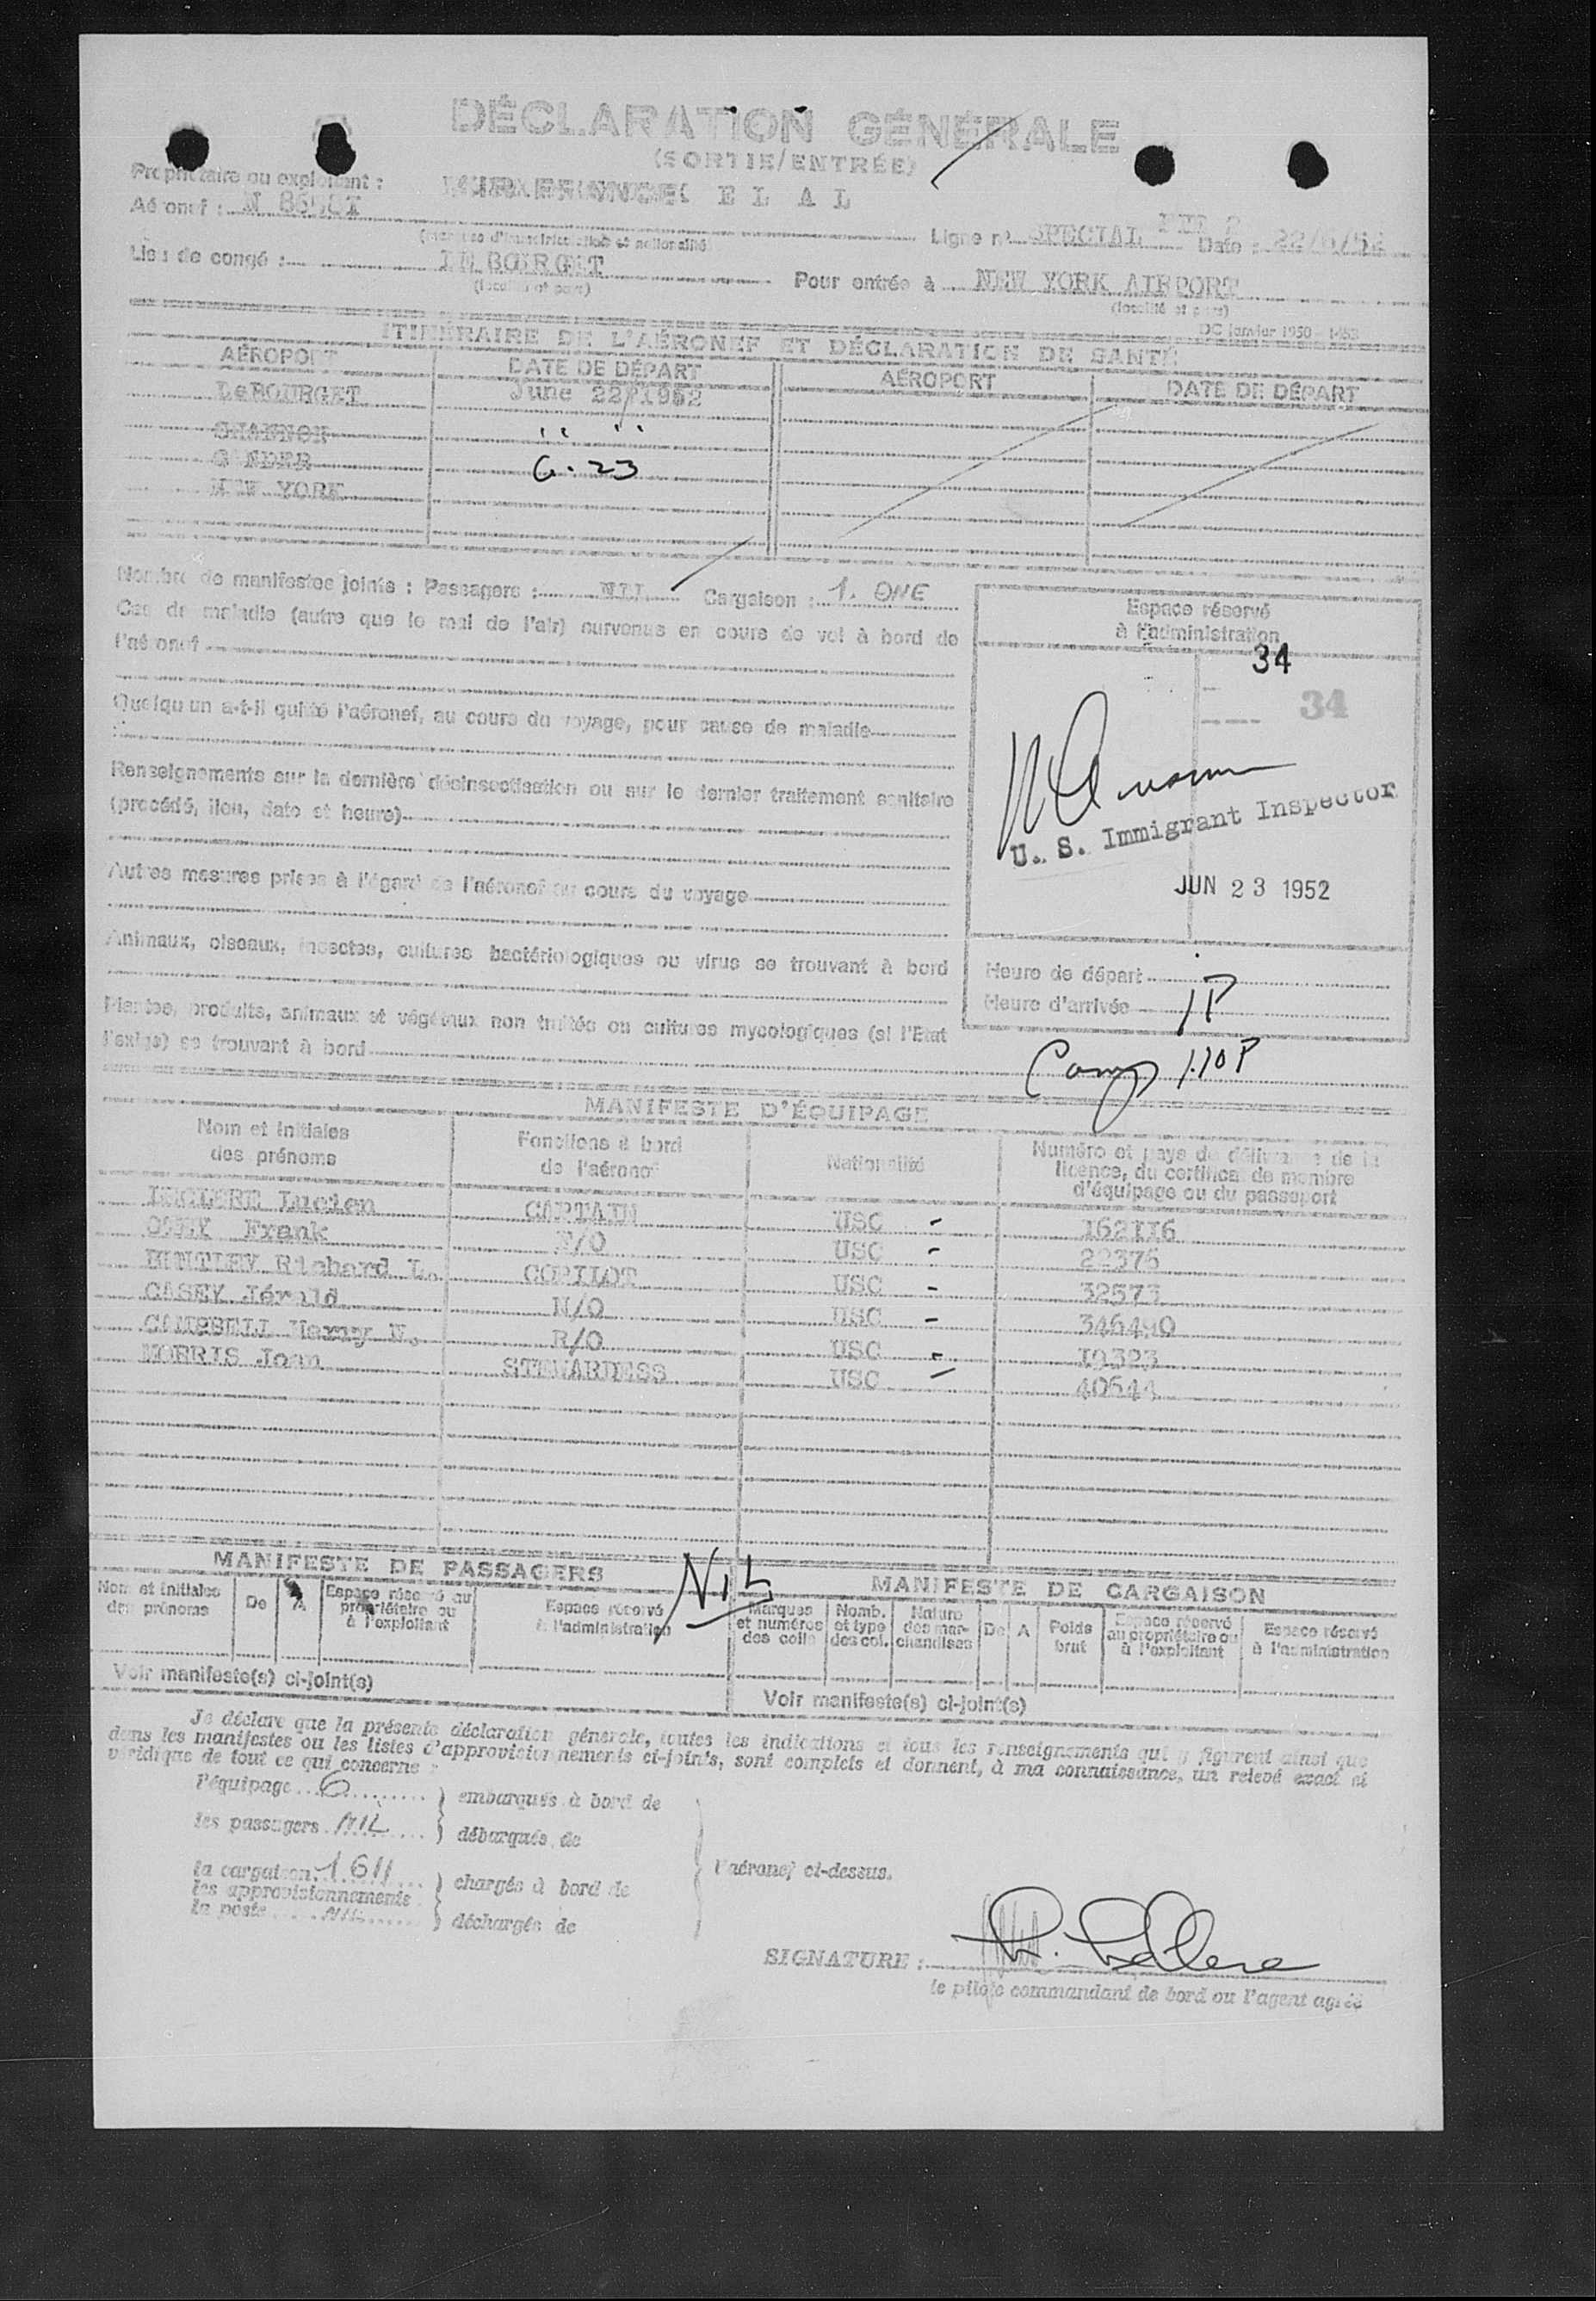 DÉCLARATION GÉNÉRALE
(SORTIE/ENTRÉE)
Propriétaire ou exploitant : EL AL
Aéronef : N
(marques d'immatriculation et nationalité)
Ligne no SPECIAL Date : 22/6/52
Lieu de congé : LE BOURGET
(localité et pays)
Pour entrée à NEW YORK AIRPORT
(localité et pays)
DC janvier 1950
ITINÉRAIRE DE L'AÉRONEF ET DÉCLARATION DE SANTÉ
AÉROPORT DATE DE DÉPART AÉROPORT DATE DE DÉPART
LeBOURGET June 22, 1952
SHANNON " "
GANDER 6-23
NEW YORK
Nombre de manifestes joints : Passagers : NIL Cargaison : 1. ONE
Cas de maladie (autre que le mal de l'air) survenus en cours de vol à bord de
l'aéronef
Quelqu'un a-t-il quitté l'aéronef, au cours du voyage, pour cause de maladie
Renseignements sur la dernière désinsectisation ou sur le dernier traitement sanitaire
(procédé, lieu, date et heure)
Autres mesures prises à l'égard de l'aéronef au cours du voyage
Animaux, oiseaux, insectes, cultures bactériologiques ou virus se trouvant à bord
Plantes, produits, animaux et végétaux non traités ou cultures mycologiques (si l'Etat
l'exige) se trouvant à bord
Espace réservé
à l'administration
34
34
U. S. Immigrant Inspector
JUN 23 1952
Heure de départ
Heure d'arrivée 1P
Comp 1.10P
MANIFESTE D'ÉQUIPAGE
Nom et initiales
des prénoms
Fonctions à bord
de l'aéronef
Nationalité
Numéro et pays de délivrance de la
licence, du certificat de membre
d'équipage ou du passeport
Lucien CAPTAIN USC - 162116
Frank USC - 22376
Richard L. COPILOT USC - 32573
CASEY Jérald N/O USC - 346490
CAMPBELL R/O USC - 19323
MORRIS Joan STEWARDESS USC - 40644
MANIFESTE DE PASSAGERS
NIL
MANIFESTE DE CARGAISON
Nom et initiales
des prénoms
De
A
Espace réservé au
propriétaire ou
à l'exploitant
Espace réservé
à l'administration
Marques
et numéros
des colis
Nomb.
et type
des col.
Nature
des mar-
chandises
De
A
Poids
brut
Espace réservé
au propriétaire ou
à l'exploitant
Espace réservé
à l'administration
Voir manifeste(s) ci-joint(s)
Voir manifeste(s) ci-joint(s)
Je déclare que la présente déclaration générale, toutes les indications et tous les renseignements qui y figurent ainsi que
dans les manifestes ou les listes d'approvisionnements ci-joints, sont complets et donnent, à ma connaissance, un relevé exact et
véridique de tout ce qui concerne :
l'équipage 6 embarqués à bord de
les passagers NIL débarqués de
l'aéronef ci-dessus.
la cargaison 1611 chargés à bord de
les approvisionnements
la poste NIL déchargés de
SIGNATURE :
le pilote commandant de bord ou l'agent agréé